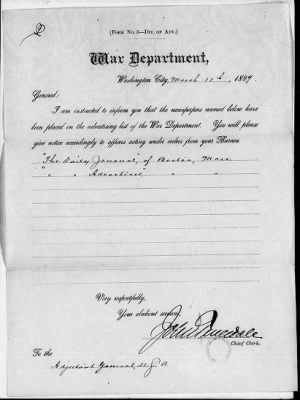 (FORM NO. 3—DIV. OF ADV.)
War Department,
Washington City, March 11th, 1889.
General:
I am instructed to inform you that the newspapers named below have
been placed on the advertising list of the War Department. You will please
give notice accordingly to officers acting under orders from your Bureau.
"The Daily Journal", of Boston, Mass.
" " Advertiser" " "
Very respectfully,
Your obedient servant,
John Tweedale
Chief Clerk.
To the
Adjutant General, U.S.A